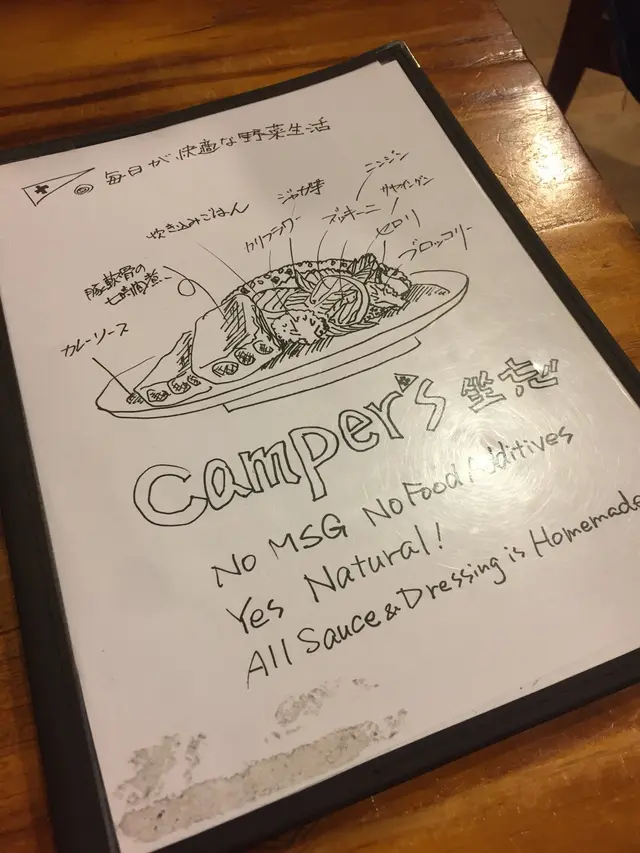 毎日が快適な野菜生活
ニンジン
ジャガ芋
サヤインゲン
炊き込みごはん
ズッキーニ
カリフラワー
セロリ
ブロッコリー
豚軟骨の
カレーソース
camper's 坐忘
No MSG No Food Additives
Yes Natural!
All Sauce & Dressing is Homemade